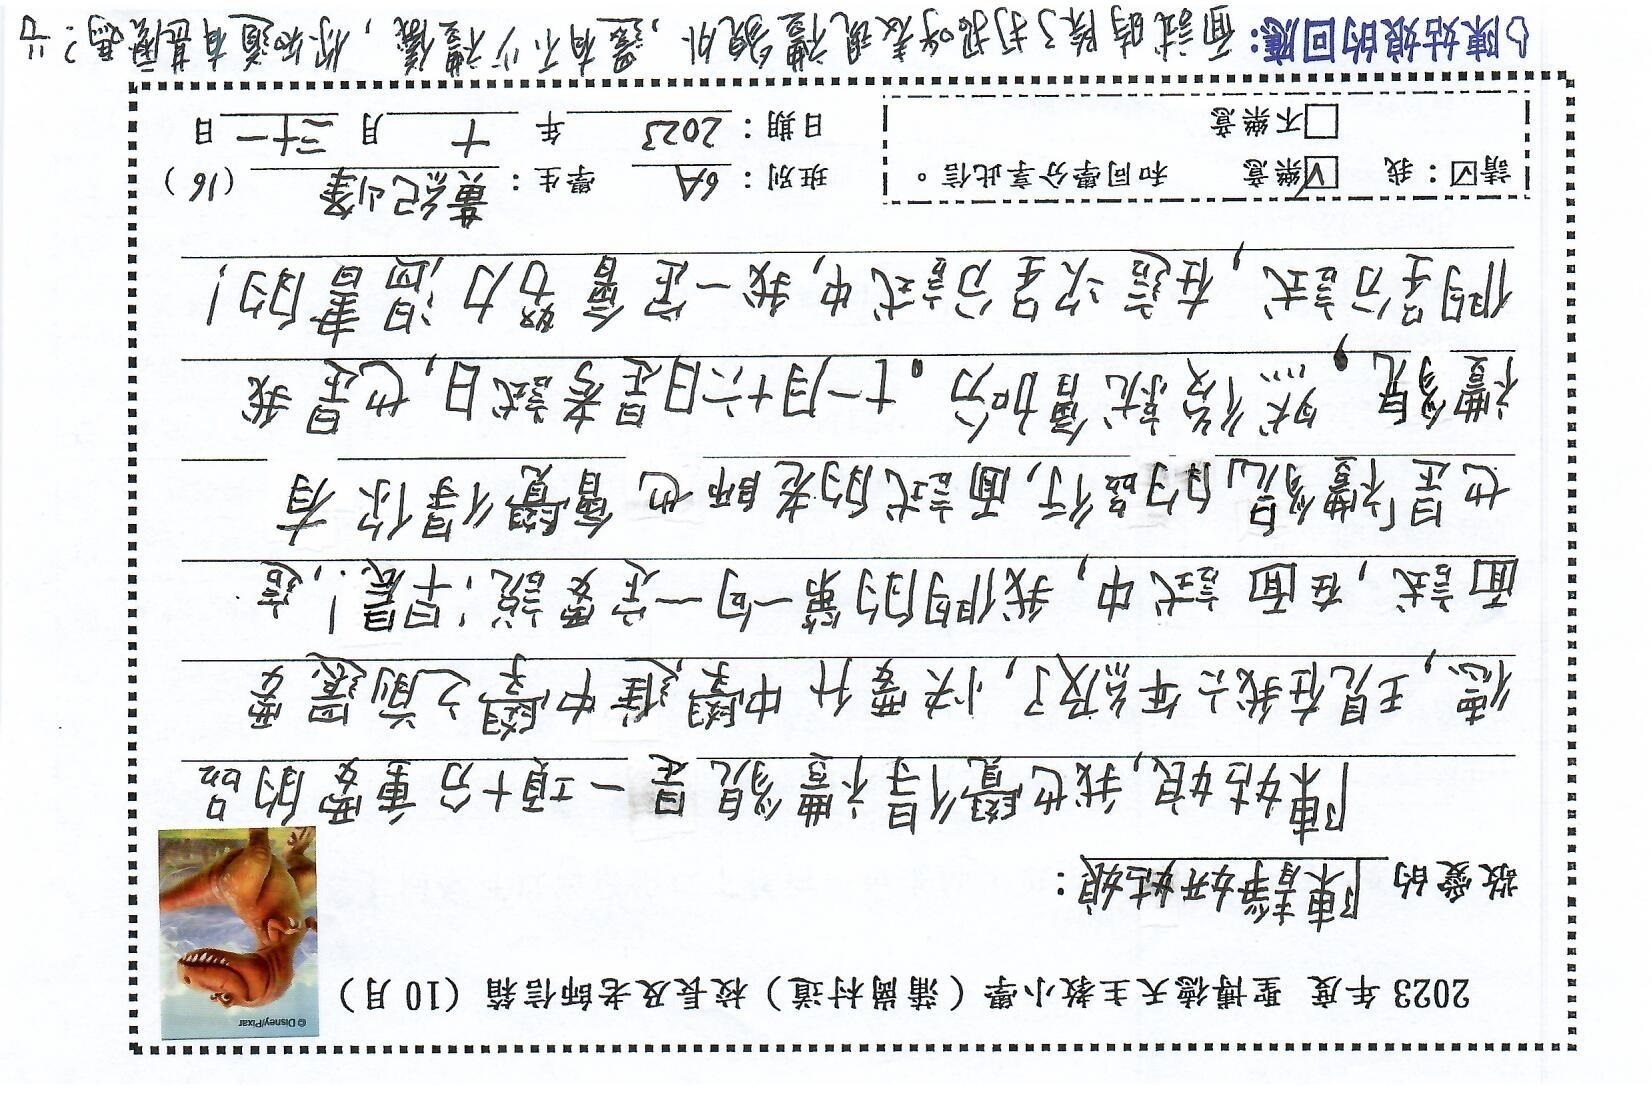 2023 年度 聖博德天主教小學（蒲崗村道）校長及老師信箱（10 月）
© Disney/Pixar
敬愛的 陳靜妍姑娘：
陳姑娘，我也覺得禮貌是一項十分重要的品
德，現在我六年級了，快要升中學，進中學之前還需要
面試，在面試中，我們的第一句一定要說：早晨！，這
也是禮貌的品行，面試的老師也會覺得你有
禮貌，然後就會加分。十一月十六日是考試日，也是我
們呈分試，在這次呈分試中，我一定會努力溫習書的！
請☑：我 ☑樂意 和同學分享此信。 班別：6A 學生：黃紀峯 (16)
□不樂意 日期：2023 年 十 月 三十一 日
陳姑娘的回應：面試時除了打招呼表現禮貌外，還有不少禮儀，你知道有甚麼嗎？